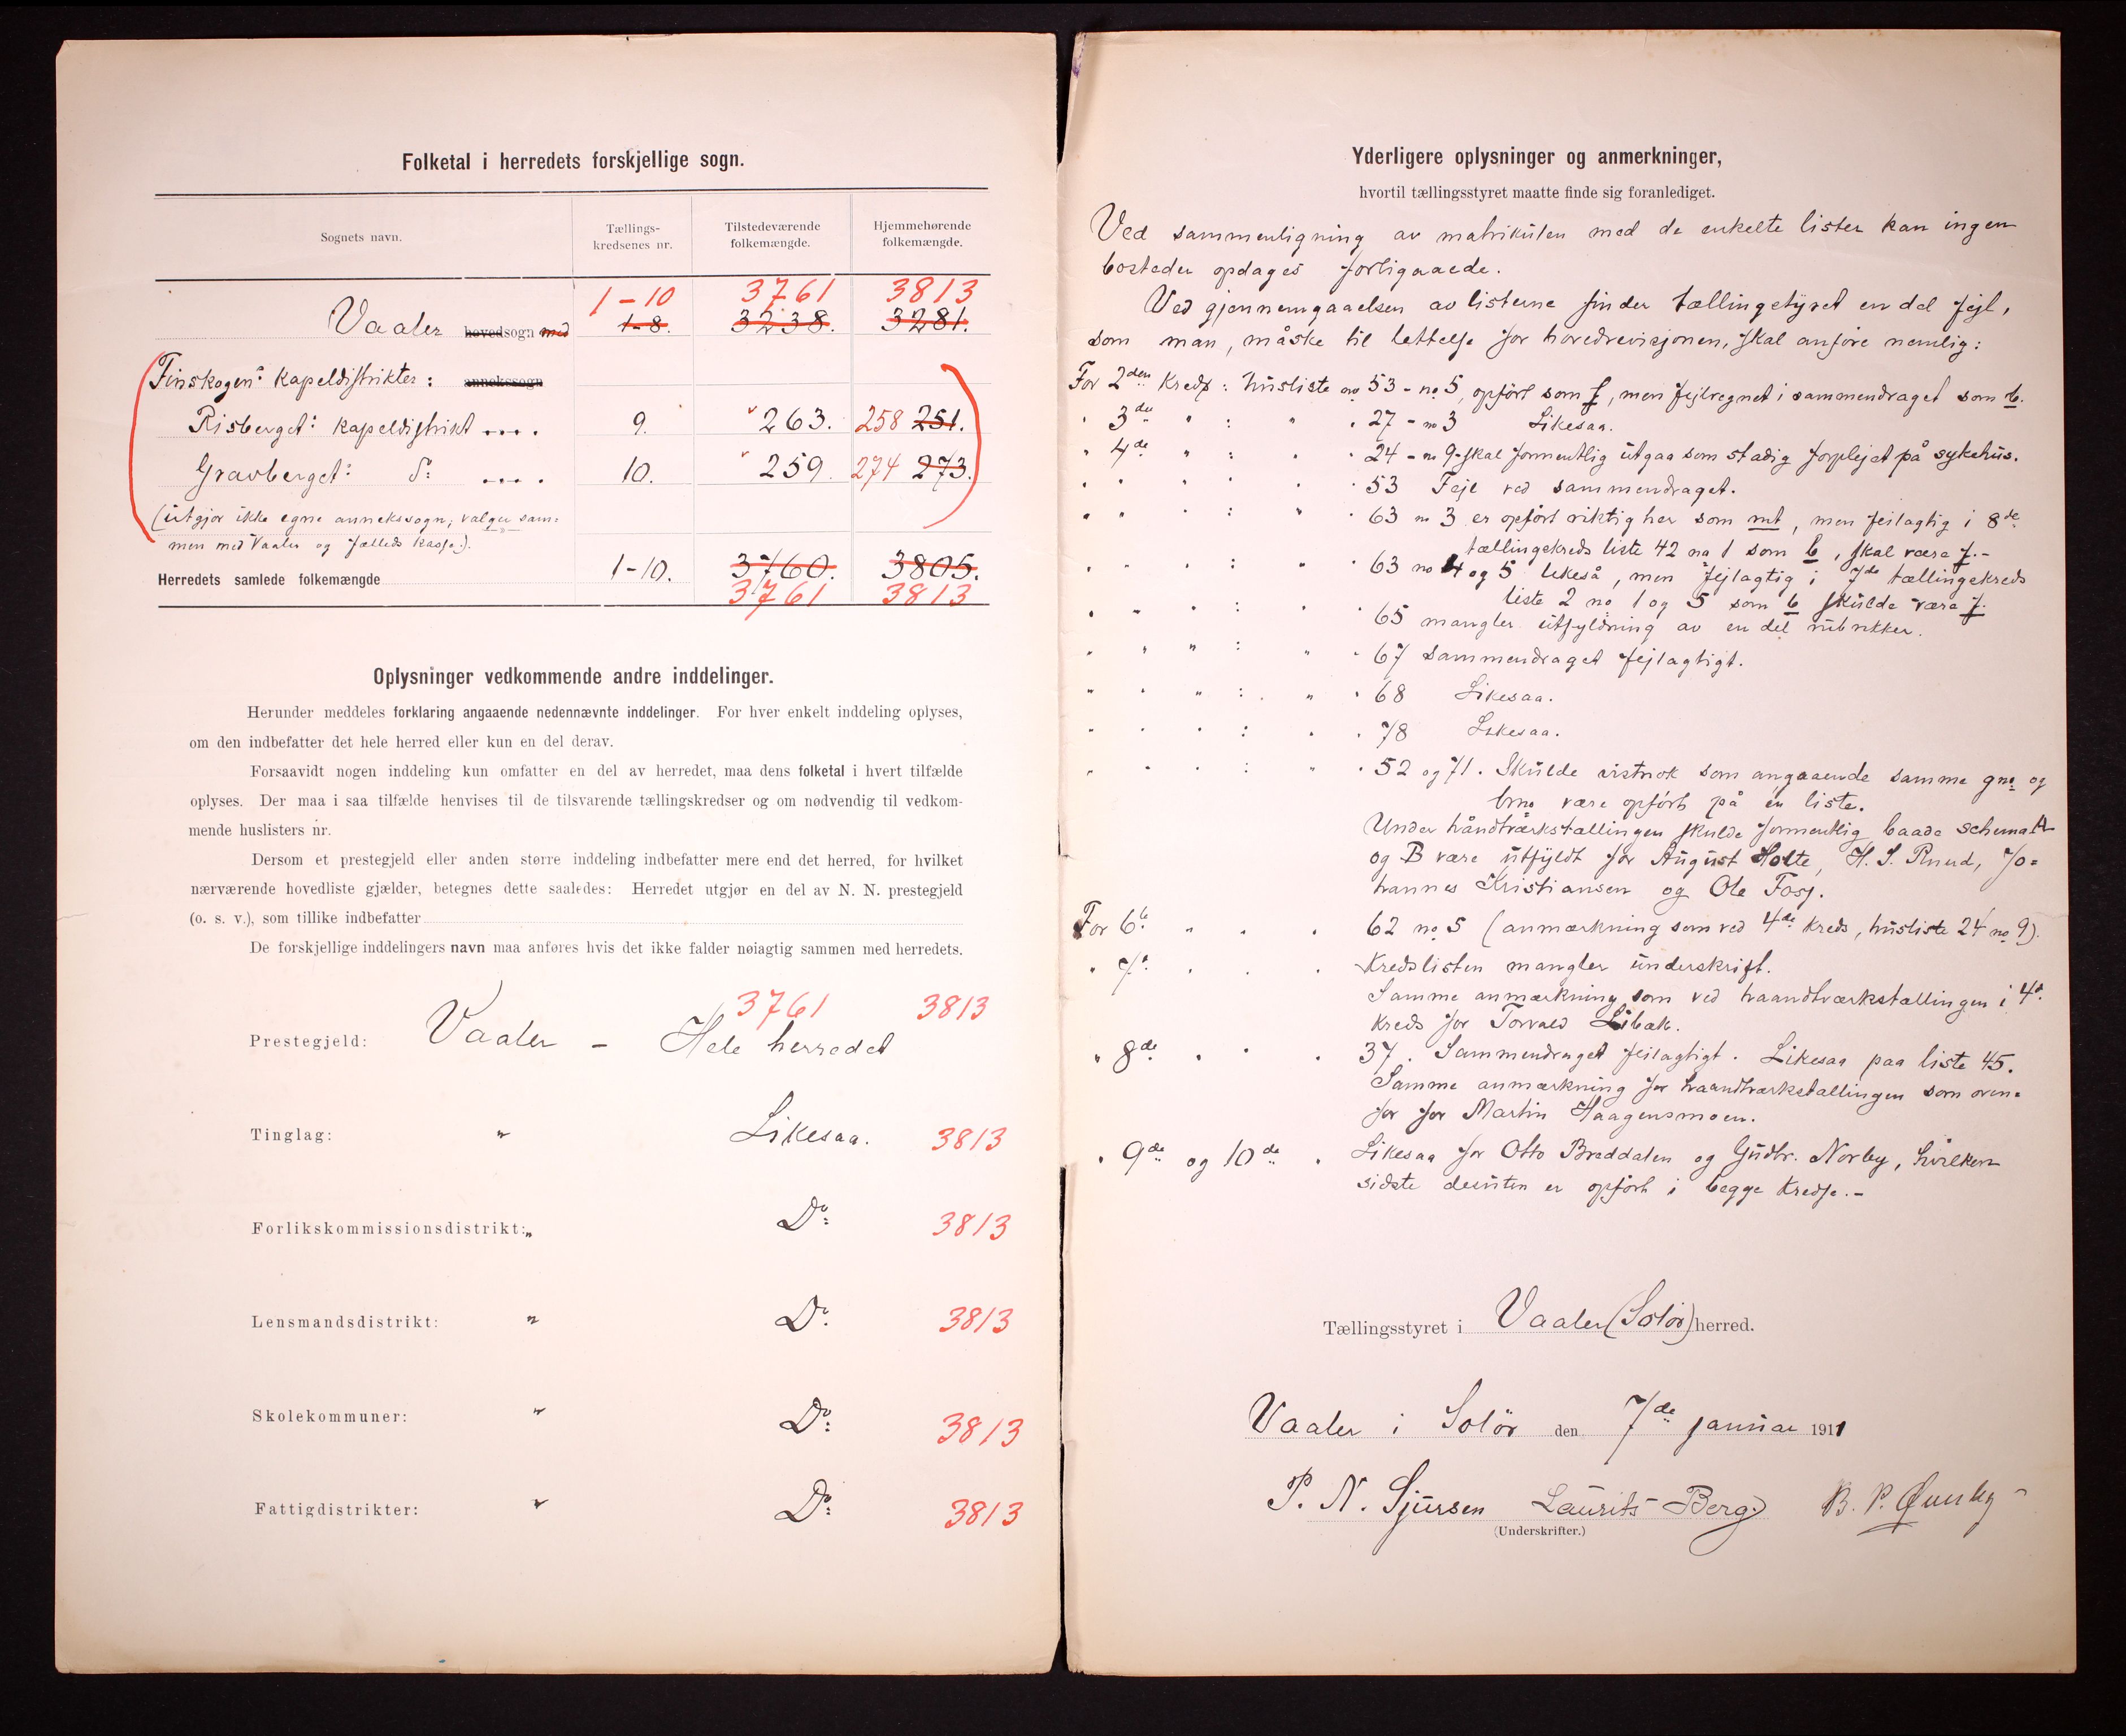 Folketal i herredets forskjellige sogn.
Sognets navn.
Tællings-
kredsenes nr.
Tilstedeværende
folkemængde.
Hjemmehørende
folkemængde.
1-10 3761 3813
Vaaler hovedsogn med 1-8. 3238. 3281.
Finskogens kapeldistrikter: annekssogn
Risberget: kapeldistrikt .... 9. 263. 258 251.
Gravberget: do .... 10. 259. 274 273.
(utgjør ikke egne annekssogn; valger sam-
men med Vaaler og fælleds kasse.).
Herredets samlede folkemængde 1-10. 3760. 3805.
3761 3813
Oplysninger vedkommende andre inddelinger.
Herunder meddeles forklaring angaaende nedennævnte inddelinger. For hver enkelt inddeling oplyses,
om den indbefatter det hele herred eller kun en del derav.
Forsaavidt nogen inddeling kun omfatter en del av herredet, maa dens folketal i hvert tilfælde
oplyses. Der maa i saa tilfælde henvises til de tilsvarende tællingskredser og om nødvendig til vedkom-
mende huslisters nr.
Dersom et prestegjeld eller anden større inddeling indbefatter mere end det herred, for hvilket
nærværende hovedliste gjælder, betegnes dette saaledes: Herredet utgjør en del av N. N. prestegjeld
(o. s. v.), som tillike indbefatter
De forskjellige inddelingers navn maa anføres hvis det ikke falder nøiagtig sammen med herredets.
3761 3813
Prestegjeld: Vaaler - Hele herredet
Tinglag: " Likesaa. 3813
Forlikskommissionsdistrikt: " Do 3813
Lensmandsdistrikt: " Do 3813
Skolekommuner: " Do 3813
Fattigdistrikter: " Do 3813
Yderligere oplysninger og anmerkninger,
hvortil tællingsstyret maatte finde sig foranlediget.
Ved sammenligning av matrikulen med de enkelte lister kan ingen
bosteder opdages forbigaaede.
Ved gjennemgaaelsen av listerne finder tællingstyret en del fejl,
som man, måske til lettelse for hovedrevisjonen, skal anføre nemlig:
For 2den Kreds: husliste no 53 - no 5, opført som f, men fejlregnet i sammendraget som b.
" 3de " : " " 27 - no 3 Likesaa.
" 4de " : " " 24 - no 9 - skal formentlig utgaa som stadig forplejet på sykehus.
" " " : " " 53 Fejl ved sammendraget.
" " " : " " 63 no 3 er opført riktig her som mt, men feilagtig i 8de
tællingskreds liste 42 no 1 som b, skal være f.-
" " " : " " 63 no 4 og 5 likeså, men fejlagtig i 7de tællingskreds
liste 2 no 1 og 5 som b skulde være f.
" " " : " " 65 mangler utfyldning av en del rubrikker.
" " " : " " 67 sammendraget fejlagtigt.
" " " : " " 68 Likesaa.
" " " : " " 78 Likesaa.
" " " : " " 52 og 71. Skulde vistnok som angaaende samme gno og
bno være opført på én liste.
Under håndtværkstællingen skulde formentlig baade schema A
og B være utfyldt for August Holte, H. S. Ruud, Jo-
hannes Kristiansen og Ole Foss.
For 6te " " " 62 no 5 (anmærkning som ved 4de kreds, husliste 24 no 9).
" 7de " " " Kredslisten mangler underskrift.
Samme anmærkning som ved haandtværkstællingen i 4de
kreds for Torvald Libak.
" 8de " " " 37. Sammendraget feilagtigt. Likesaa paa liste 45.
Samme anmærkning for haandtværkstællingen som oven-
for for Martin Haagensmoen.
" 9de og 10de " Likesaa for Otto Breddalen og Gudbr. Norby, hvilken
sidste desuten er opført i begge Kredse.-
Tællingsstyret i Vaaler (Solør) herred.
Vaaler i Solør den 7de januar 1911
P. N. Sjursen Laurits Berg B. P.
(Underskrifter.)